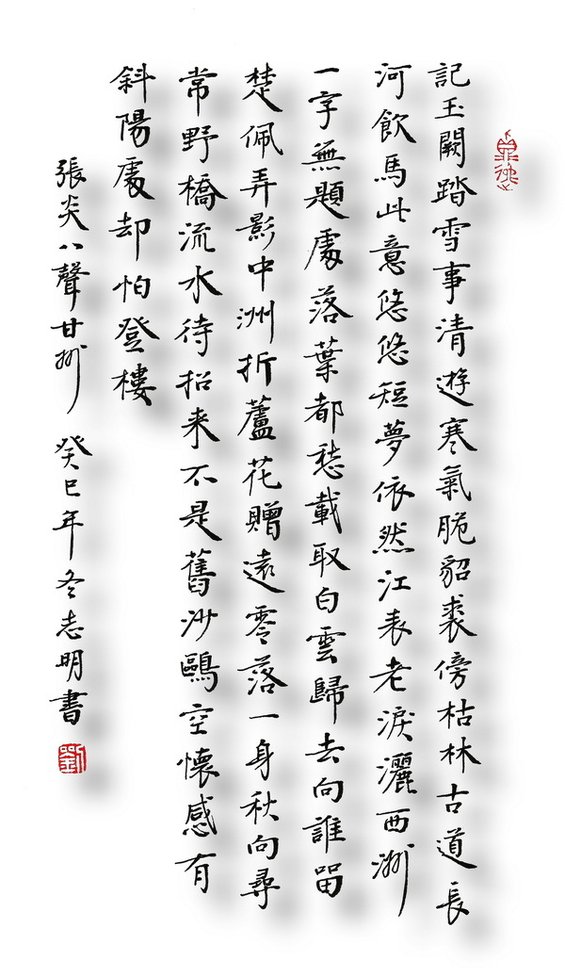 記玉闕踏雪事清遊寒氣脆貂裘傍枯林古道長
河飲馬此意悠悠短夢依然江表老淚灑西洲
一字無題處落葉都愁載取白雲歸去向誰留
楚佩弄影中洲折蘆花贈遠零落一身秋向尋
常野橋流水待招来不是舊沙鷗空懷感有
斜陽處却怕登樓
張炎八聲甘州 癸巳年冬志明書
劉